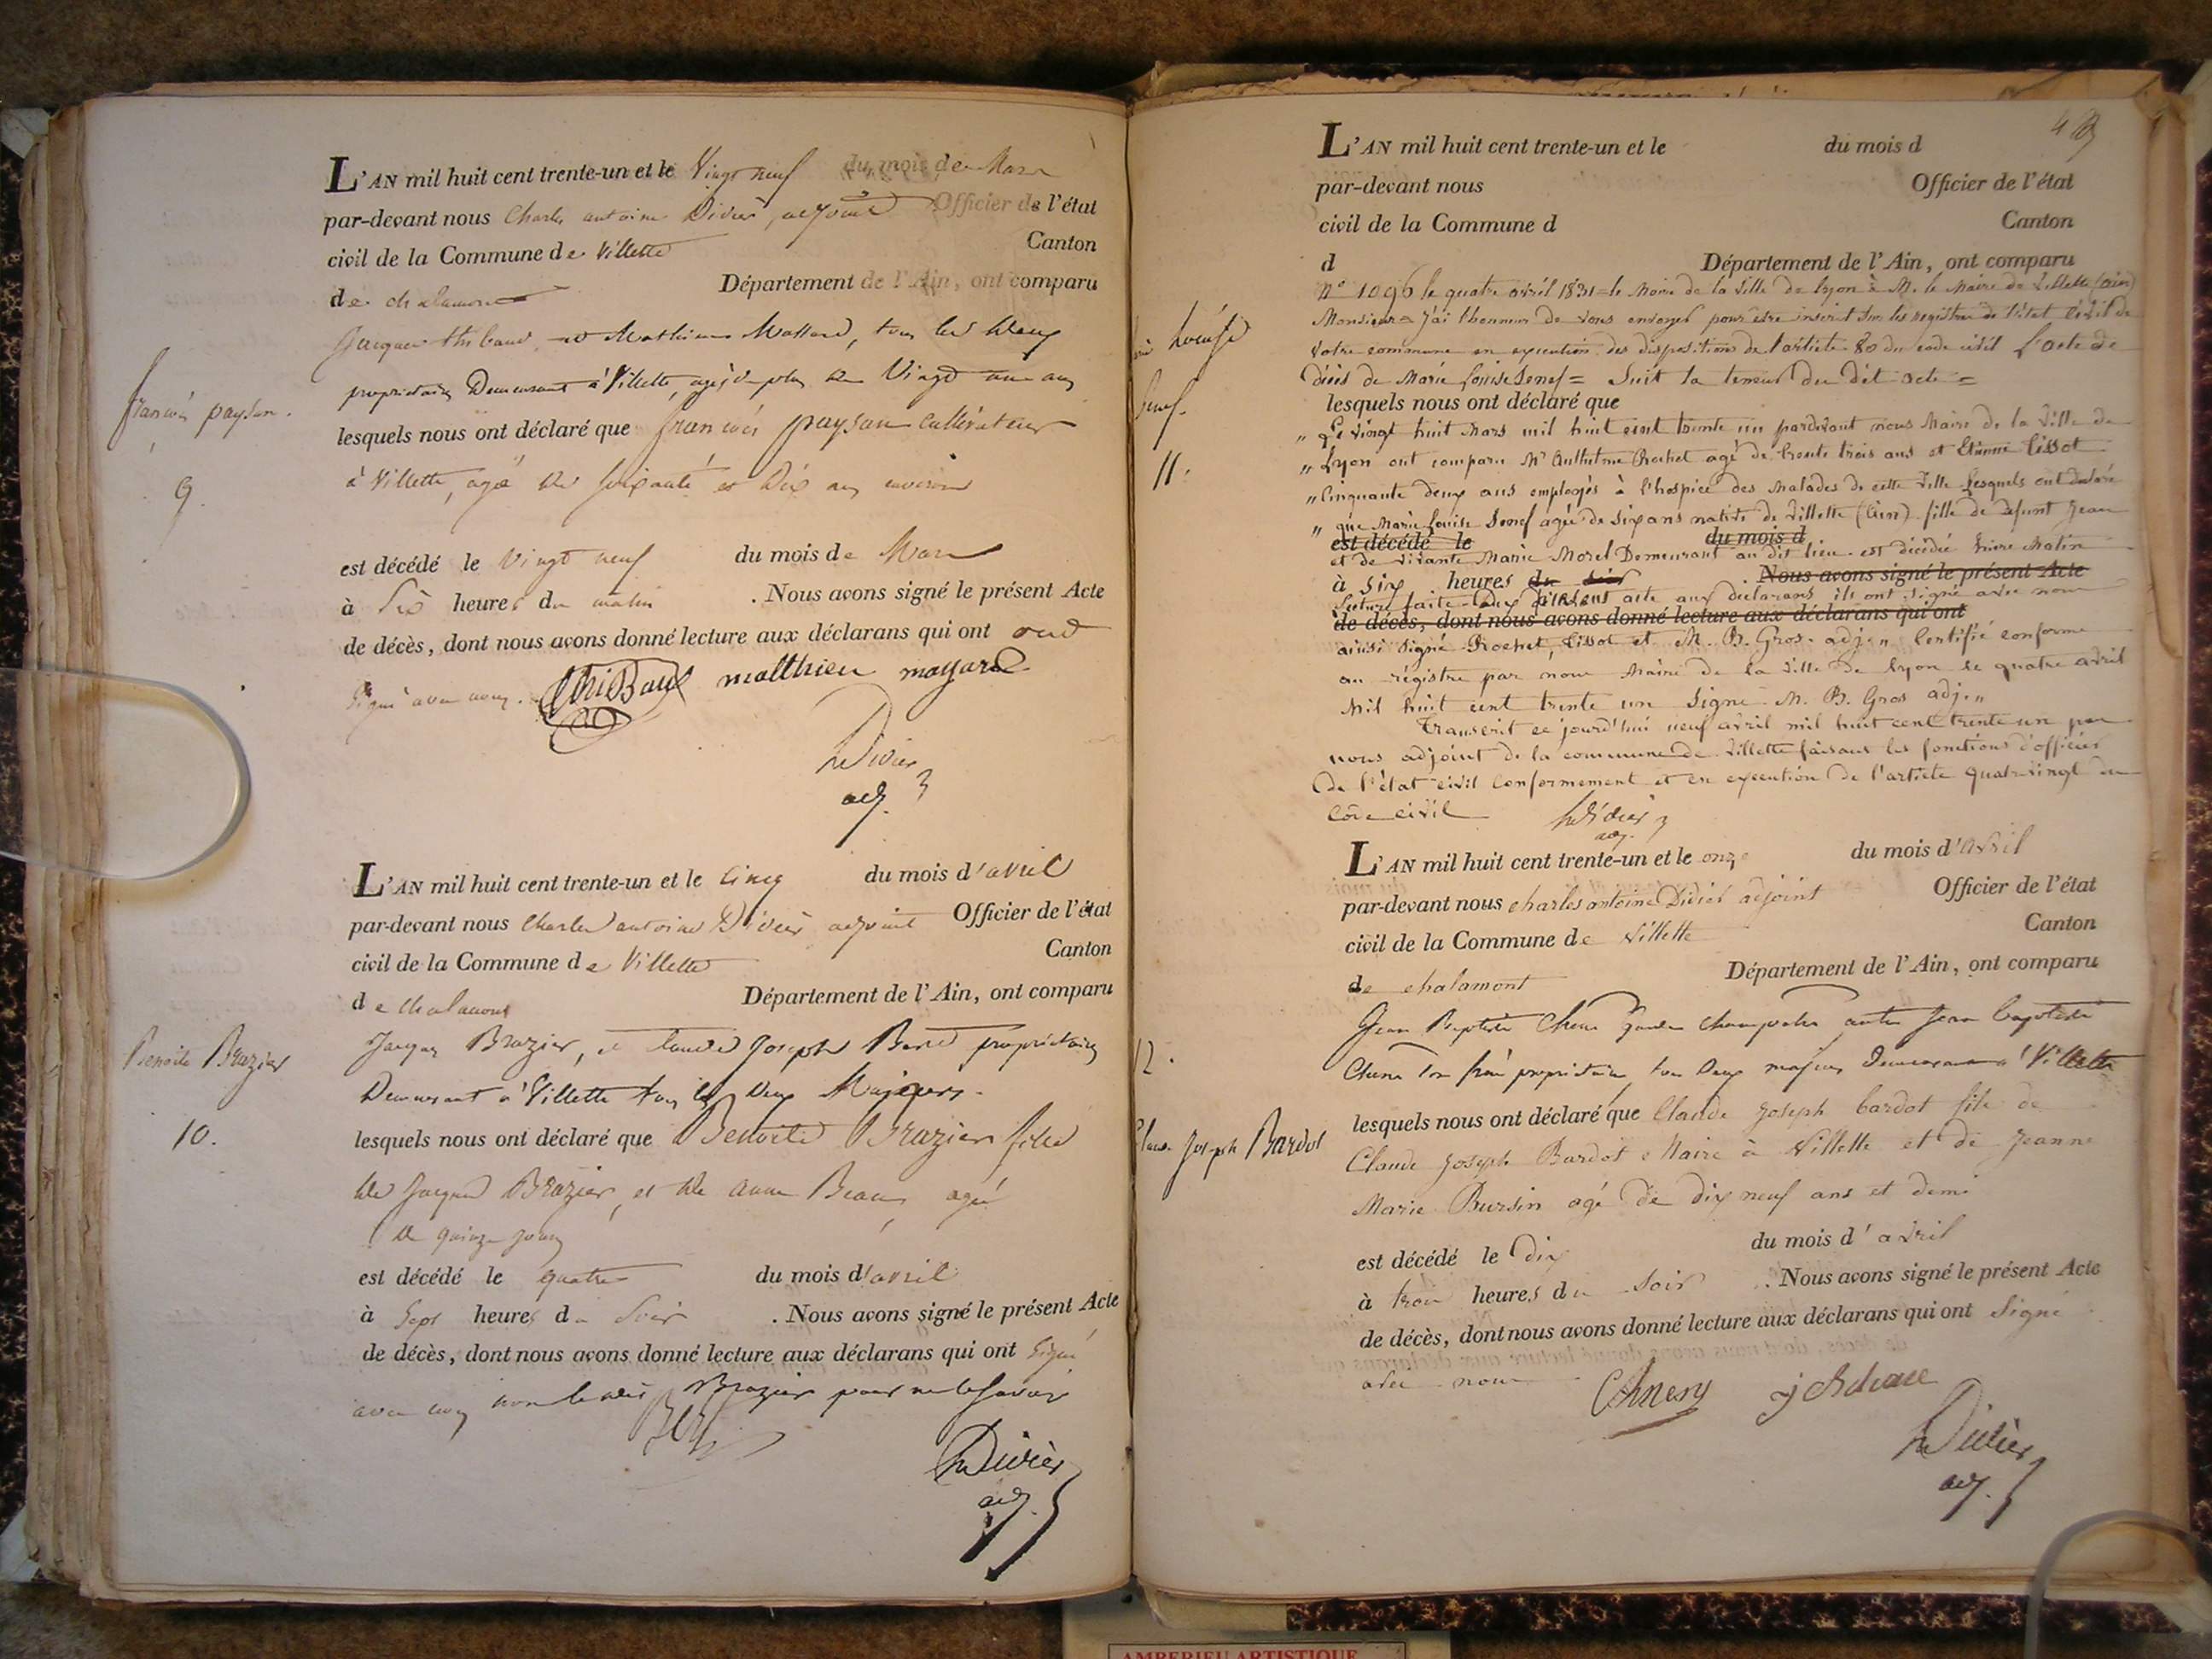 L'AN mil huit cent trente-un et le Vingt neuf du mois de Mars
par-devant nous Charles antoine Didier, adjoint Officier de l'état
civil de la Commune de Villette Canton
de chalamont Département de l'Ain, ont comparu
Jacques thibaud et Mathieu Massard, tous les deux
propriétaires Demeurant à Villette, agés de plus de Vingt un ans
françois paysan.
lesquels nous ont déclaré que françois paysan cultivateur
à Villette, agé de soixante et Dix ans environ
9.
est décédé le Vingt neuf du mois de Mars
à heures du matin . Nous avons signé le présent Acte
de décès, dont nous avons donné lecture aux déclarans qui ont
signé avec nous. thiBaud matthieu
Didier
adj.
L'AN mil huit cent trente-un et le Cinq du mois d'avril
par-devant nous Charles antoine Didier adjoint Officier de l'état
civil de la Commune de Villette Canton
de Chalamont Département de l'Ain, ont comparu
Jacques Brazier, et Claude Joseph propriétaires
Benoite Brazier
Demeurant à Villette tous les deux Majeurs.
10.
lesquels nous ont déclaré que Benoite Brazier fille
de Jacques Brazier, et de anne agée
de quinze jours
est décédé le quatre du mois d'avril
à Sept heures du Soir . Nous avons signé le présent Acte
de décès, dont nous avons donné lecture aux déclarans qui ont Signé
avec nous non le dit Brazier pour ne le savoir
Didier
adj.
L'AN mil huit cent trente-un et le du mois d
par-devant nous Officier de l'état
civil de la Commune d Canton
d Département de l'Ain, ont comparu
N° 1096 le quatre avril 1831 = le Maire de la Ville de Lyon à M. le Maire de Villette (ain)
Monsieur = J'ai l'honneur de vous envoyer pour être inscrit sur les registres de l'état Civil de
Louise
votre commune en execution des dispositions de l'article 80 du code civil l'acte de
décès de Marie Louise Senef = Suit la teneur du dit acte =
Senef.
lesquels nous ont déclaré que
„ Le vingt huit Mars mil huit cent trente un pardevant nous Maire de la Ville de
„ Lyon ont comparu Mr Anthelme Rochet agé de trente trois ans et Etienne Tissot
11.
„ Cinquante deux ans employés à l'hospice des Malades de cette Ville Lesquels ont declaré
„ que Marie Louise Senef agée de Six ans native de Villette (Ain) fille de defunt Jean
est décédé le du mois d
et de vivante Marie Morel Demeurant au dit lieu est décédée Matin
à six heures du soir . Nous avons signé le présent Acte
Lecture faite du présent acte aux declarans ils ont signé avec nous
de décès, dont nous avons donné lecture aux déclarans qui ont
ainsi signé Rochet, Tissot et M. B. Gros. adj. „ Certifié conforme
au régistre par nous Maire de la Ville de Lyon le quatre avril
Mil huit cent trente un Signé M. B. Gros adj. „
Transcrit ce jourd'hui neuf avril mil huit cent trente un par
nous adjoint de la commune de Villette faisant les fonctions d'officier
de l'état civil conformement et en execution de l'article quatre vingt du
Code civil Didier
adj.
L'AN mil huit cent trente-un et le onze du mois d'avril
par-devant nous charles antoine Didier adjoint Officier de l'état
civil de la Commune de Villette Canton
de chalamont Département de l'Ain, ont comparu
Jean Baptiste Chene garde champetre autre Jean Baptiste
12.
Chene son frère propriétaire, tous Deux majeurs Demeurant à Villette
lesquels nous ont déclaré que Claude Joseph bardot fils de
Claude Joseph Bardot
Claude Joseph Bardot Maire à Villette et de Jeanne
Marie Bursin agé de dix neuf ans et demi
est décédé le dix du mois d'avril
à trois heures du Soir . Nous avons signé le présent Acte
de décès, dont nous avons donné lecture aux déclarans qui ont Signé
avec nous
Didier
adj.
AMBERIEU ARTISTIQUE